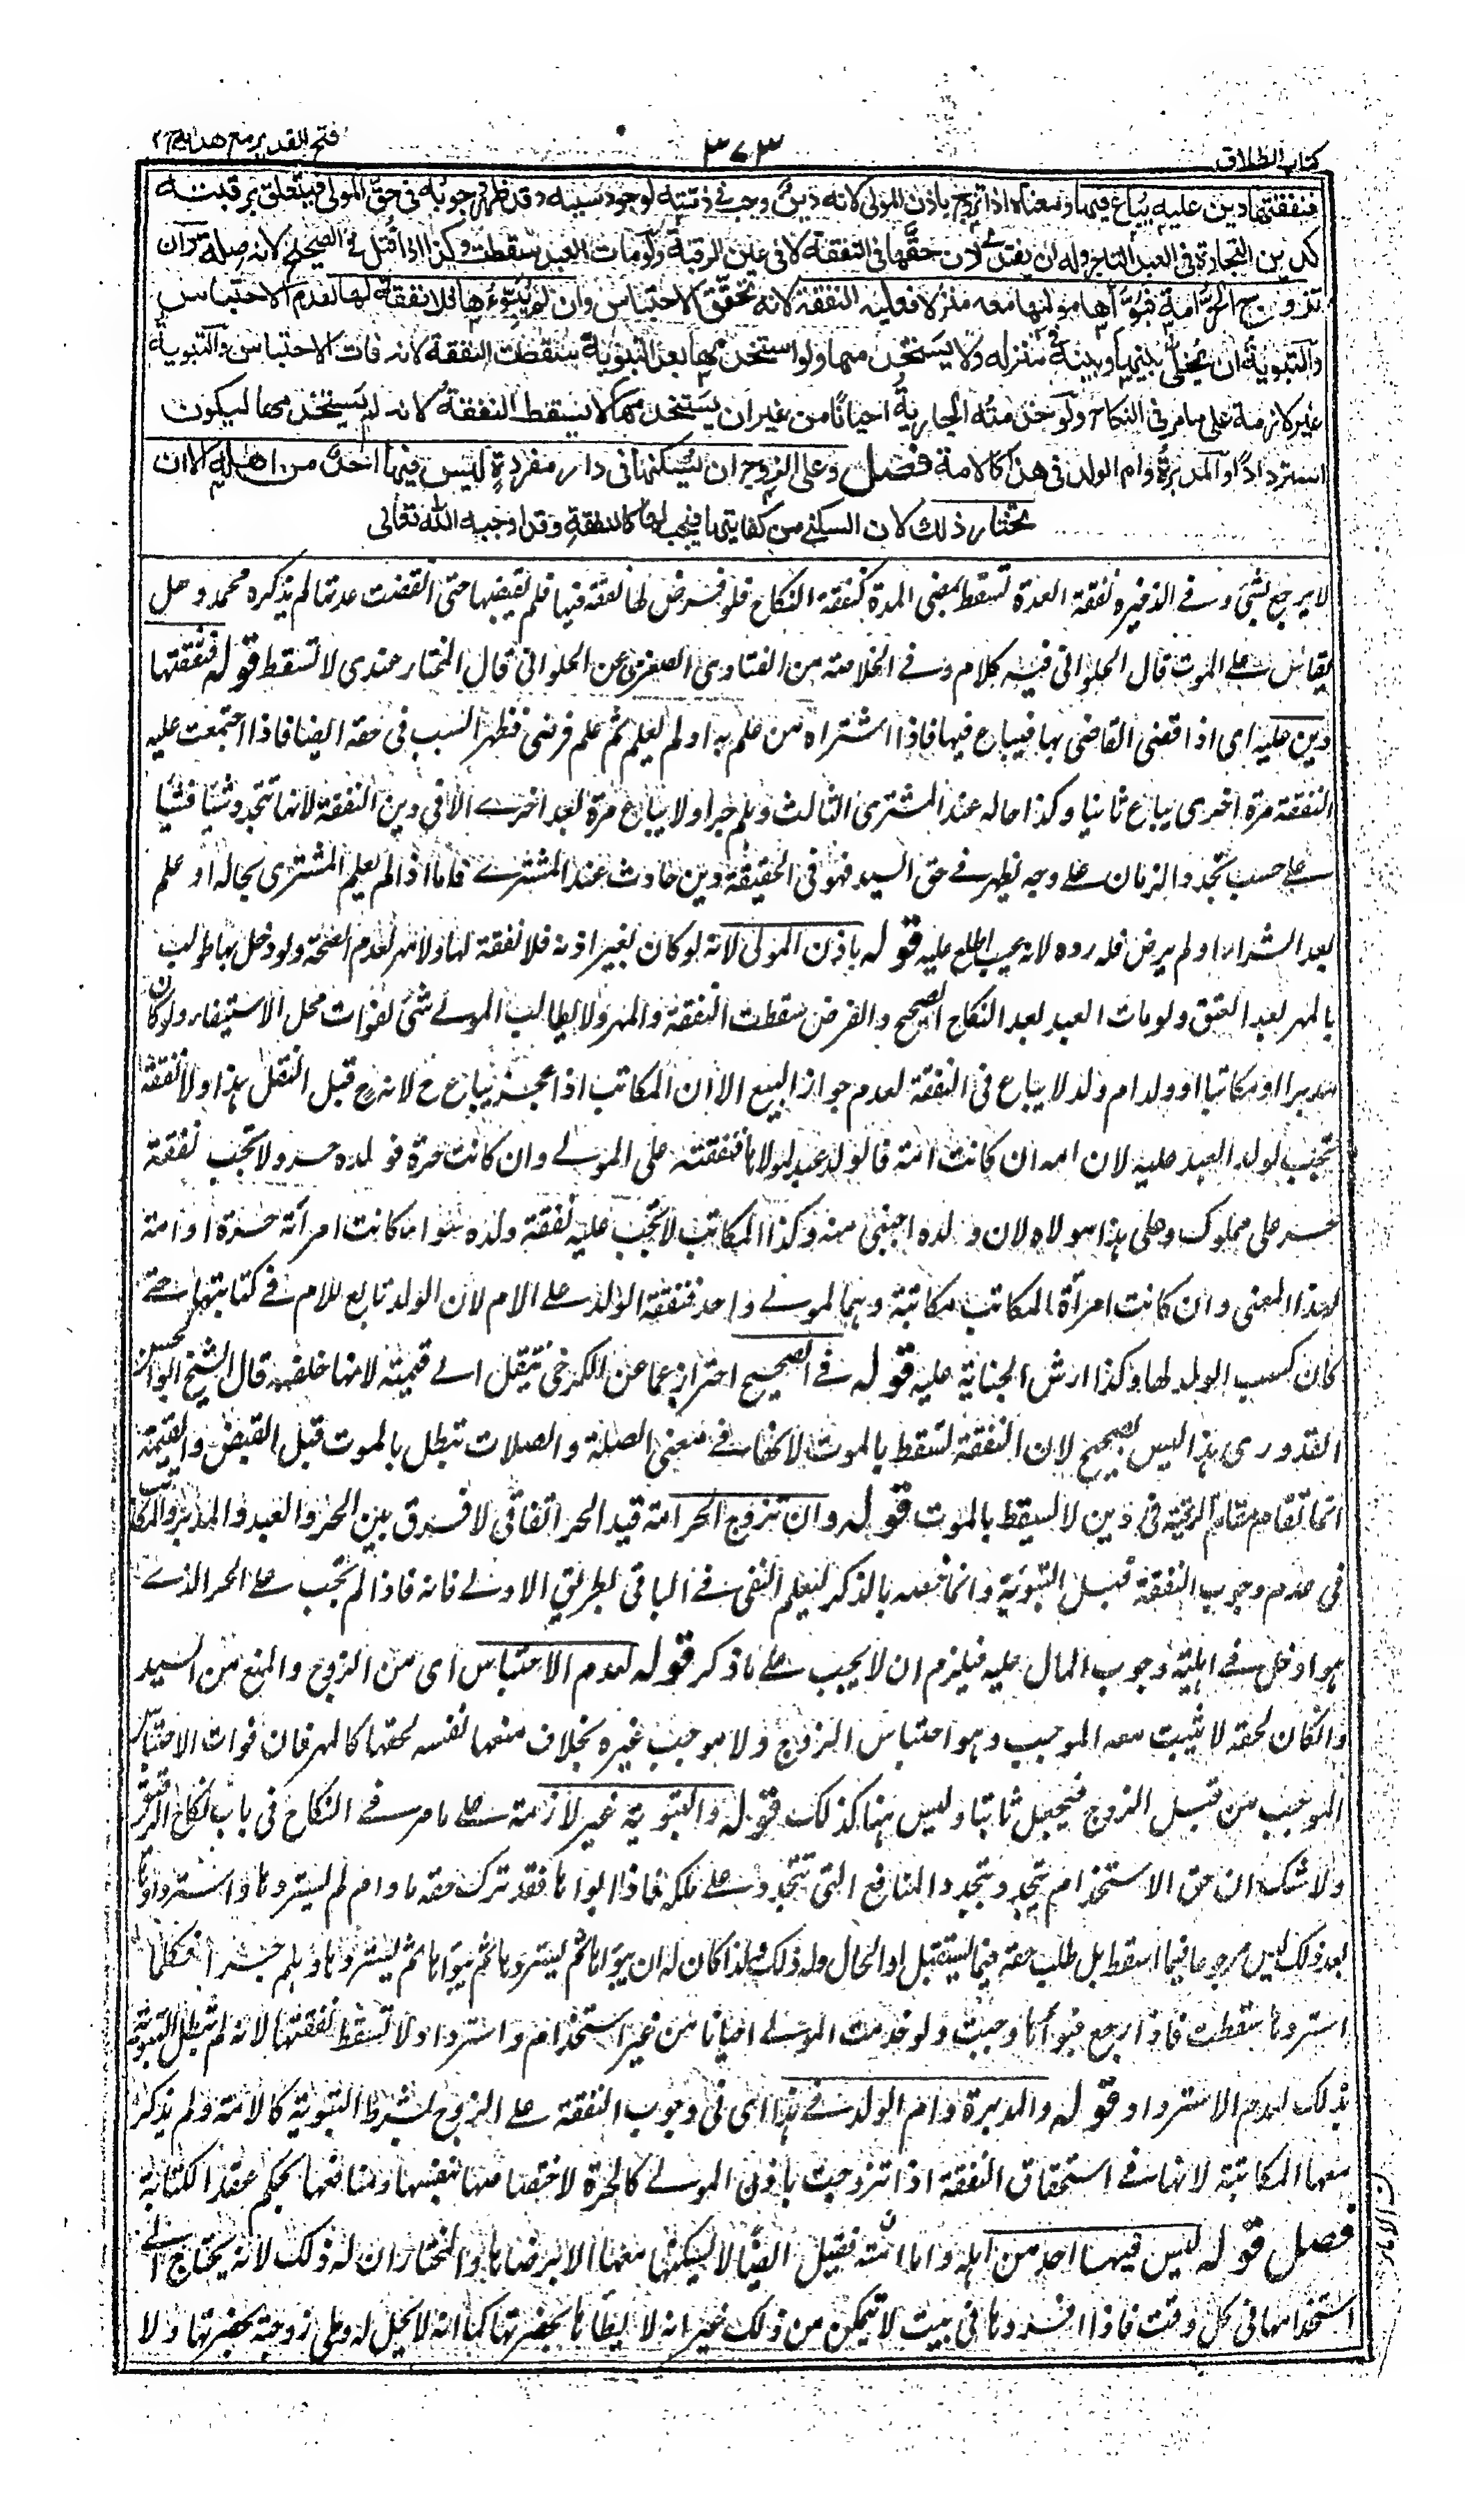 كتاب الطلاق
٣٧٣
فتح القدير مع هدايه ج٢
فنفقتها دين عليه يباع فيها ومعناه اذا تزوج باذن المولى لانه دين وجب فى ذمته لوجود سببه وقد ظهر وجوبه فى حق المولى فيتعلق برقبته
كدين التجارة فى العبد التاجر وله ان يفتدى لان حقها فى النفقة لا فى عين الرقبة ولو مات العبد سقطت وكذا اذا قتل فى الصحيح لانه صلة وان
تزوج الحر امة فبوأها مولاها معه منزلا فعليه النفقة لانه تحقق الاحتباس وان لم يبوءها فلا نفقة لها لعدم الاحتباس
والتبوية ان يخلى بينها وبينه فى منزله ولا يستخدمها ولو استخدمها بعد التبوية سقطت النفقة لانه فات الاحتباس والتبوية
غير لازمة على ما مر فى النكاح ولو خدمته الجارية احيانا من غير ان يستخدمها لا يسقط النفقة لانه لم يستخدمها ليكون
استردادا والمدبرة وام الولد فى هذا كالامة فصل وعلى الزوج ان يسكنها فى دار مفردة ليس فيها احد من اهله الا ان
تختار ذلك لان السكنى من كفايتها فيجب لها كالنفقة وقد اوجبه الله تعالى
لا يرجع بشئ وفى الذخيره نفقة العدة تسقط بمضى المدة كنفقة النكاح فلو فرض لها نفقة فيها فلم تقبضها حتى انقضت عدتها لم يذكره محمد وهل
يقاس على الموت قال الحلوانى فيه كلام وفى الخلاصة من الفتاوى الصغرى عن الحلوانى قال المختار عندى لا تسقط قوله فنفقتها
دين عليه اى اذا قضى القاضى بها فيباع فيها فاذا اشتراه من علم به او لم يعلم ثم علم فرضى فظهر السبب فى حقه ايضا فاذا اجتمعت عليه
النفقة مرة اخرى يباع ثانيا وكذا حاله عند المشترى الثالث وهلم جرا ولا يباع مرة بعد اخرى الا فى دين النفقة لانها تتجدد شيئا فشيئا
على حسب تجدد الزمان على وجه يظهر فى حق السيد فهو فى الحقيقة دين حادث عند المشترى فاما اذا لم يعلم المشترى بحاله او علم
بعد الشراء ولم يرض فله رده لانه عيب اطلع عليه قوله باذن المولى لانه لو كان بغير اذنه فلا نفقة لها ولا مهر لعدم الصحة ولو دخل بها طولب
بالمهر بعد العتق ولو مات العبد بعد النكاح الصحيح والفرض سقطت النفقة والمهر ولا يطالب المولى بشئ لفوات محل الاستيفاء ولو كان
مدبرا او مكاتبا او ولد ام ولد لا يباع فى النفقة لعدم جواز البيع الا ان المكاتب اذا عجز يباع ح لانه ح قبل النقل هذا ولا نفقة
تجب لولد العبد عليه لان امه ان كانت امة فالولد عبد لمولاها فنفقته على المولى وان كانت حرة فولده حر ولا تجب نفقة
حر على مملوك وعلى هذا مولاه لان ولده اجنبى منه وكذا المكاتب لا تجب عليه نفقة ولده سواء كانت امرأته حرة او امة
لهذا المعنى وان كانت امرأة المكاتب مكاتبة وهما لمولى واحد فنفقة الولد على الام لان الولد تابع للام فى كتابتها حتى
كان كسب الولد لها وكذا ارش الجناية عليه قوله فى الصحيح احتراز عما عن الكرخى تنتقل الى قيمته لانها خلفه قال الشيخ ابو الحسن
القدورى هذا ليس بصحيح لان النفقة تسقط بالموت لانها فى معنى الصلة والصلات تبطل بالموت قبل القبض والقيمة
انما تقام مقام الرقبة فى دين لا يسقط بالموت قوله وان تزوج الحر امة قيد الحر اتفاقى لا فرق بين الحر والعبد والمدبر والمكاتب
فى عدم وجوب النفقة قبل التبوية وانما خصه بالذكر ليعلم النفى فى الباقى بطريق الاولى فانه فاذا لم تجب على الحر الذى
هو ادخل فى اهلية وجوب المال عليه فيلزم ان لا يجب على ما ذكر قوله لعدم الاحتباس اى من الزوج والمنع من السيد
وان كان لحقه لا يثبت معه الموجب وهو احتباس الزوج ولا موجب غيره بخلاف منعها نفسها لحقها كالمهر فان فوات الاحتباس
الموجب من قبل الزوج فيجعل ثابتا وليس هنا كذلك قوله والتبوية غير لازمة على ما مر فى النكاح فى باب نكاح الرقيق
ولا شك ان حق الاستخدام يتجدد بتجدد المنافع التى تتجدد على ملكه فاذا بوأها فقد ترك حقه ما دام لم يستردها واستردادها
بعد ذلك ليس رجوعا فيما اسقط بل طلب حقه فيما يستقبل او الحال وله ذلك ولذا كان له ان يبوأها ثم يستردها ثم يبوأها ثم يستردها وهلم جرا فكلما
استردها سقطت فاذا رجع فبوأها وجبت ولو خدمت المولى احيانا من غير استخدام واسترداد لا تسقط نفقتها لانه لم تبطل التبوية
بذلك لعدم الاسترداد قوله والمدبرة وام الولد فى هذا اى فى وجوب النفقة على الزوج بشرط التبوية كالامة ولم يذكر
معها المكاتبة لانها فى استحقاق النفقة اذا تزوجت باذن المولى كالحرة لاختصاصها بنفسها ومنافعها بحكم عقد الكتابة
فصل قوله ليس فيها احد من اهله واما امته فقيل ايضا لا يسكنها معها الا برضاها والمختار ان له ذلك لانه يحتاج الى
استخدامها فى كل وقت فاذا افردها فى بيت لا يتمكن من ذلك غير انه لا يطأها بحضرتها كما انه لا يحل له وطى زوجة بحضرتها ولا